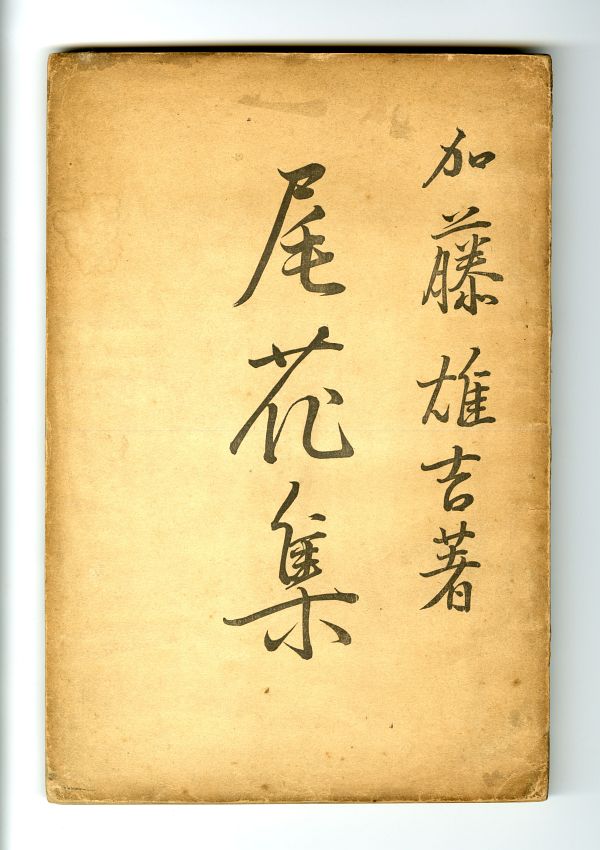 加藤雄吉著
尾花集